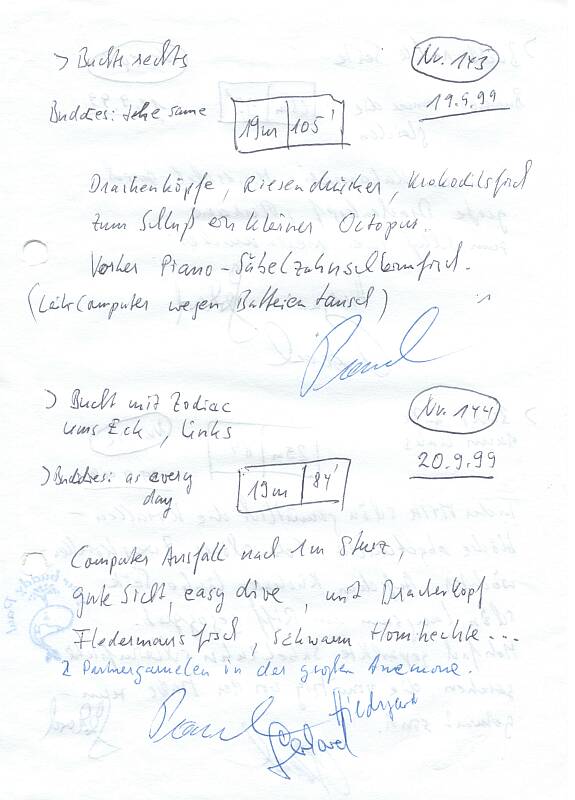 > Bucht rechts
Nr. 143
Buddies: the same
19m 105'
19.9.99
Drachenköpfe, Riesendrücker, Krokodilsfisch
zum Schluß ein kleiner Octopus.
Vorher Piano-Säbelzahnschleimfisch.
(LeihComputer wegen Batterientausch)
> Bucht mit Zodiac
ums Eck, links
Nr. 144
20.9.99
> Buddies: as every
day
19m 84'
Computer Ausfall nach 1m Sturz,
gute Sicht, easy dive, mit Drachenkopf
Fledermausfisch, Schwarm Hornhechte...
2 Partnergarnelen in der großen Anemone.
Hildegard
Gerhard